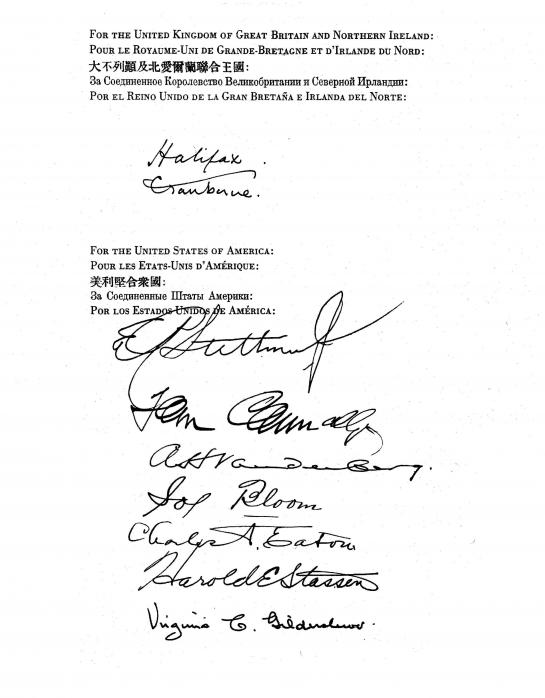 FOR THE UNITED KINGDOM OF GREAT BRITAIN AND NORTHERN IRELAND:
POUR LE ROYAUME-UNI DE GRANDE-BRETAGNE ET D'IRLANDE DU NORD:
大不列顛及北愛爾蘭聯合王國:
За Соединенное Королевство Великобритании и Северной Ирландии:
POR EL REINO UNIDO DE LA GRAN BRETAÑA E IRLANDA DEL NORTE:
Halifax.
Cranborne.
FOR THE UNITED STATES OF AMERICA:
POUR LES ETATS-UNIS D'AMÉRIQUE:
美利堅合衆國:
За Соединенные Штаты Америки:
POR LOS ESTADOS UNIDOS DE AMÉRICA:
E R Stettinius Jr
Tom Connally
A H Vandenberg.
Sol Bloom
Charles A. Eaton
Harold E Stassen
Virginia C. Gildersleeve.